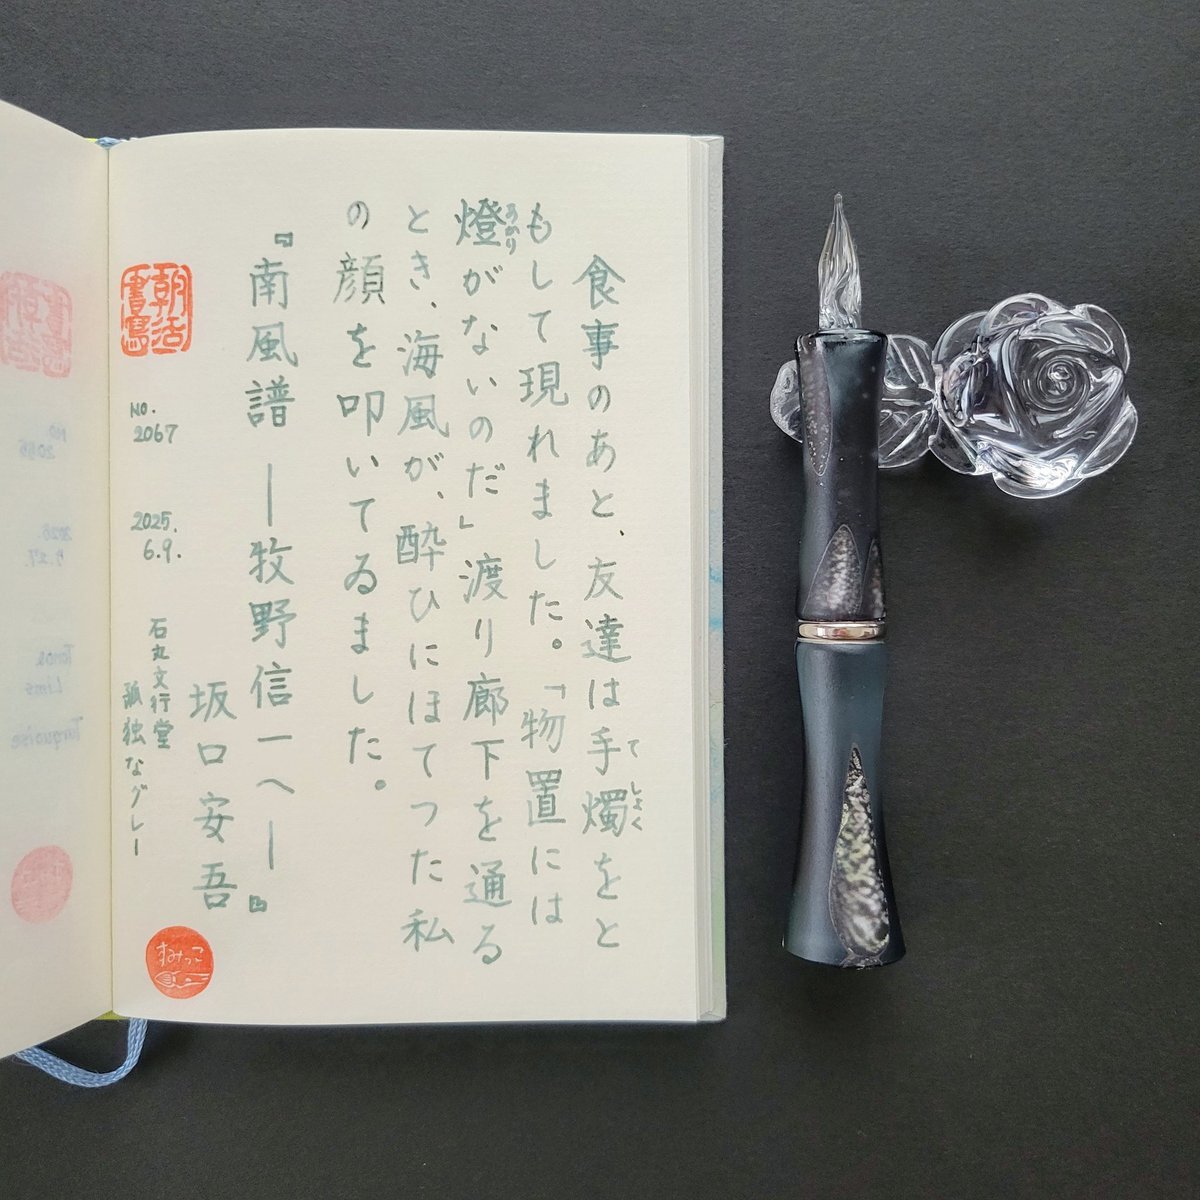 食事のあと、友達は手燭をと
てしよく
もして現れました。「物置には
燈がないのだ」渡り廊下を通る
あかり
とき、海風が、酔ひにほてつた私
の顔を叩いてゐました。
『南風譜 ―牧野信一へ―』
坂口安吾
朝活書寫
NO.
2067
2025.
6.9.
石丸文行堂
孤独なグレー
すみっこ